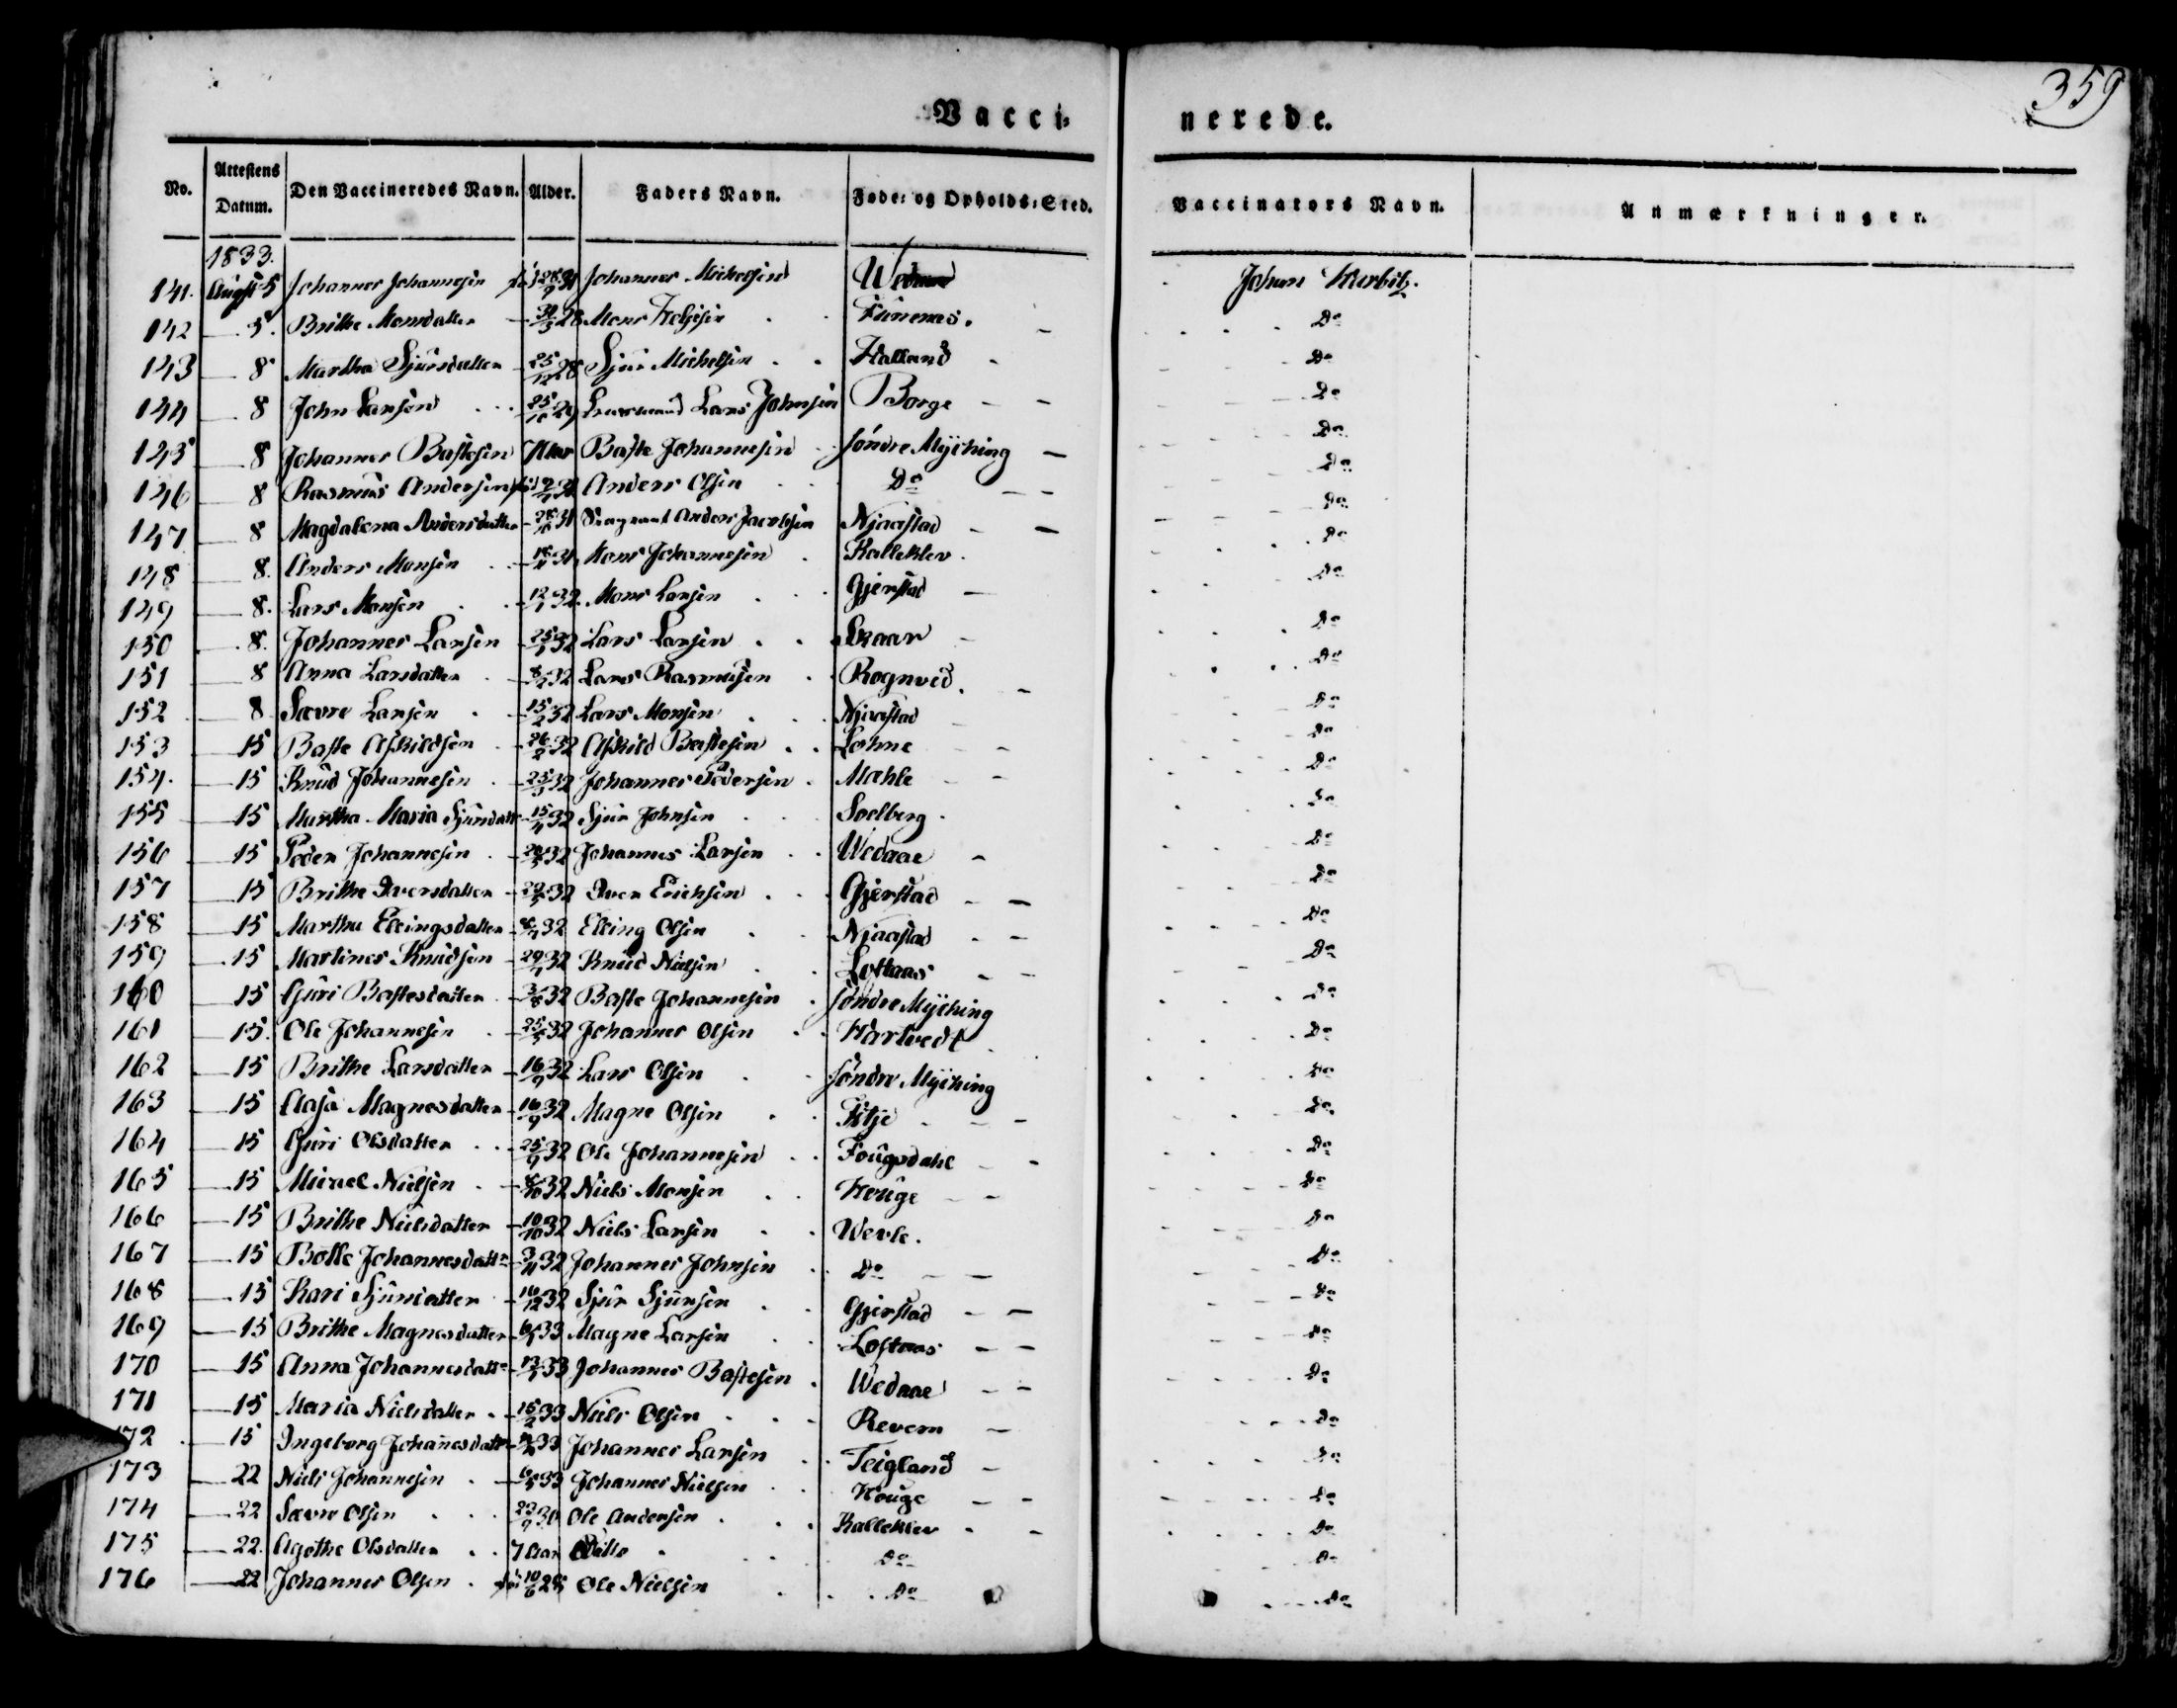 359
Vacci- nerede.
No. Attestens Datum. Den Vaccineredes Navn. Alder. Faders Navn. Føde- og Opholds-Sted. Vaccinators Navn. Anmærkninger.
1833.
141. August 5 Johannes Johannesen 31 Johannes Michelsen Johan
142 — 5. Brithe Monsdatter 28 Mons Do
143 — 8 Martha Sjursdatter 25/12 28 Sjur Michelsen Halland Do
144 — 8 John Larsen 29 Lars Johnsen Borge Do
145 — 8 Johannes Bastesen Baste Johannesen Søndre Mÿching Do
146 — 8 Rasmus Andersen Anders Olsen Do Do
147 — 8 Magdalena Andersdatter 31 Sergeant Anders Jacobsen Njaastad Do
148 — 8. Anders Monsen 31 Mons Johannesen Kalleklev Do
149 — 8. Lars Monsen 12/1 32 Mons Larsen Gjerstad Do
150 — 8. Johannes Larsen 25/1 32 Lars Larsen Skaar Do
151 — 8 Anna Larsdatter 8/2 32 Lars Rasmusen Rognved Do
152 — 8 Sævre Larsen 15/2 32 Lars Monsen Njaastad Do
153 — 15 Baste Askildsen 26/2 32 Askild Bastesen Lohne Do
154. — 15 Knud Johannesen 25/3 32 Johannes Pedersen Mæhle Do
155 — 15 Martha Maria Sjursdatt 15/4 32 Sjur Johnsen Soelberg Do
156 — 15 Peder Johannesen 32 Johannes Larsen Wedaae Do
157 — 15 Brithe Iversdatter 32 Iver Erichsen Gjerstad Do
158 — 15 Martha Ellingsdatter 32 Elling Olsen Njaastad Do
159 — 15 Martines Knudsen 29/7 32 Knud Nielsen Loftaas Do
160 — 15 Guri Bastesdatter 3/8 32 Baste Johannesen Søndre Mÿching Do
161 — 15. Ole Johannesen 32 Johannes Olsen Hartvedt Do
162 — 15 Brithe Larsdatter 16/9 32 Lars Olsen Søndre Mÿching Do
163 — 15 Aasa Magnesdatter 16/9 32 Magne Olsen Do
164 — 15 Guri Olsdatter 25/9 32 Ole Johannesen Fougsdahl Do
165 — 15 Nielsen 32 Niels Monsen Houge Do
166 — 15 Brithe Nielsdatter 10/10 32 Niels Larsen Werle. Do
167 — 15 Botle Johannesdattr 3/11 32 Johannes Johnsen Do Do
168 — 15 Kari Sjursdatter 16/12 32 Sjur Sjursen Gjerstad Do
169 — 15 Brithe Magnesdatter 6/1 33 Magne Larsen Loftaas Do
170 — 15 Anna Johannesdattr 13/1 33 Johannes Bastesen Wedaae Do
171 — 15 Maria Nielsdatter 15/2 33 Niels Olsen Revem Do
172 — 15 Ingeborg Johañesdattr 33 Johannes Larsen Teigland Do
173 — 22 Niels Johannesen 33 Johannes Nielsen Houge Do
174 — 22 Sævre Olsen 23/9 30 Ole Andersen Kalleklev Do
175 — 22. Agothe Olsdatter 7 Aar Ditto Do Do
176 — 22 Johannes Olsen 10/6 28 Ole Nielsen Do Do